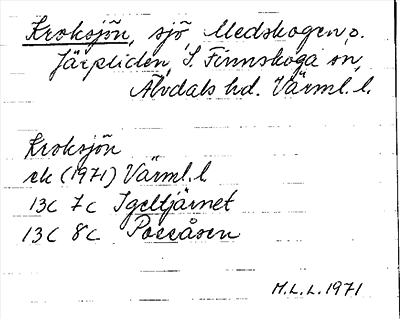 Kroksjön, sjö Medskogen, o.
Järpliden, S. Finnskoga sn,
Älvdals hd. Värml. l.
Kroksjön
rk (1971) Värml. l
13C 7c Igeltjärnet
13C 8c Possåsen
M.L.L. 1971